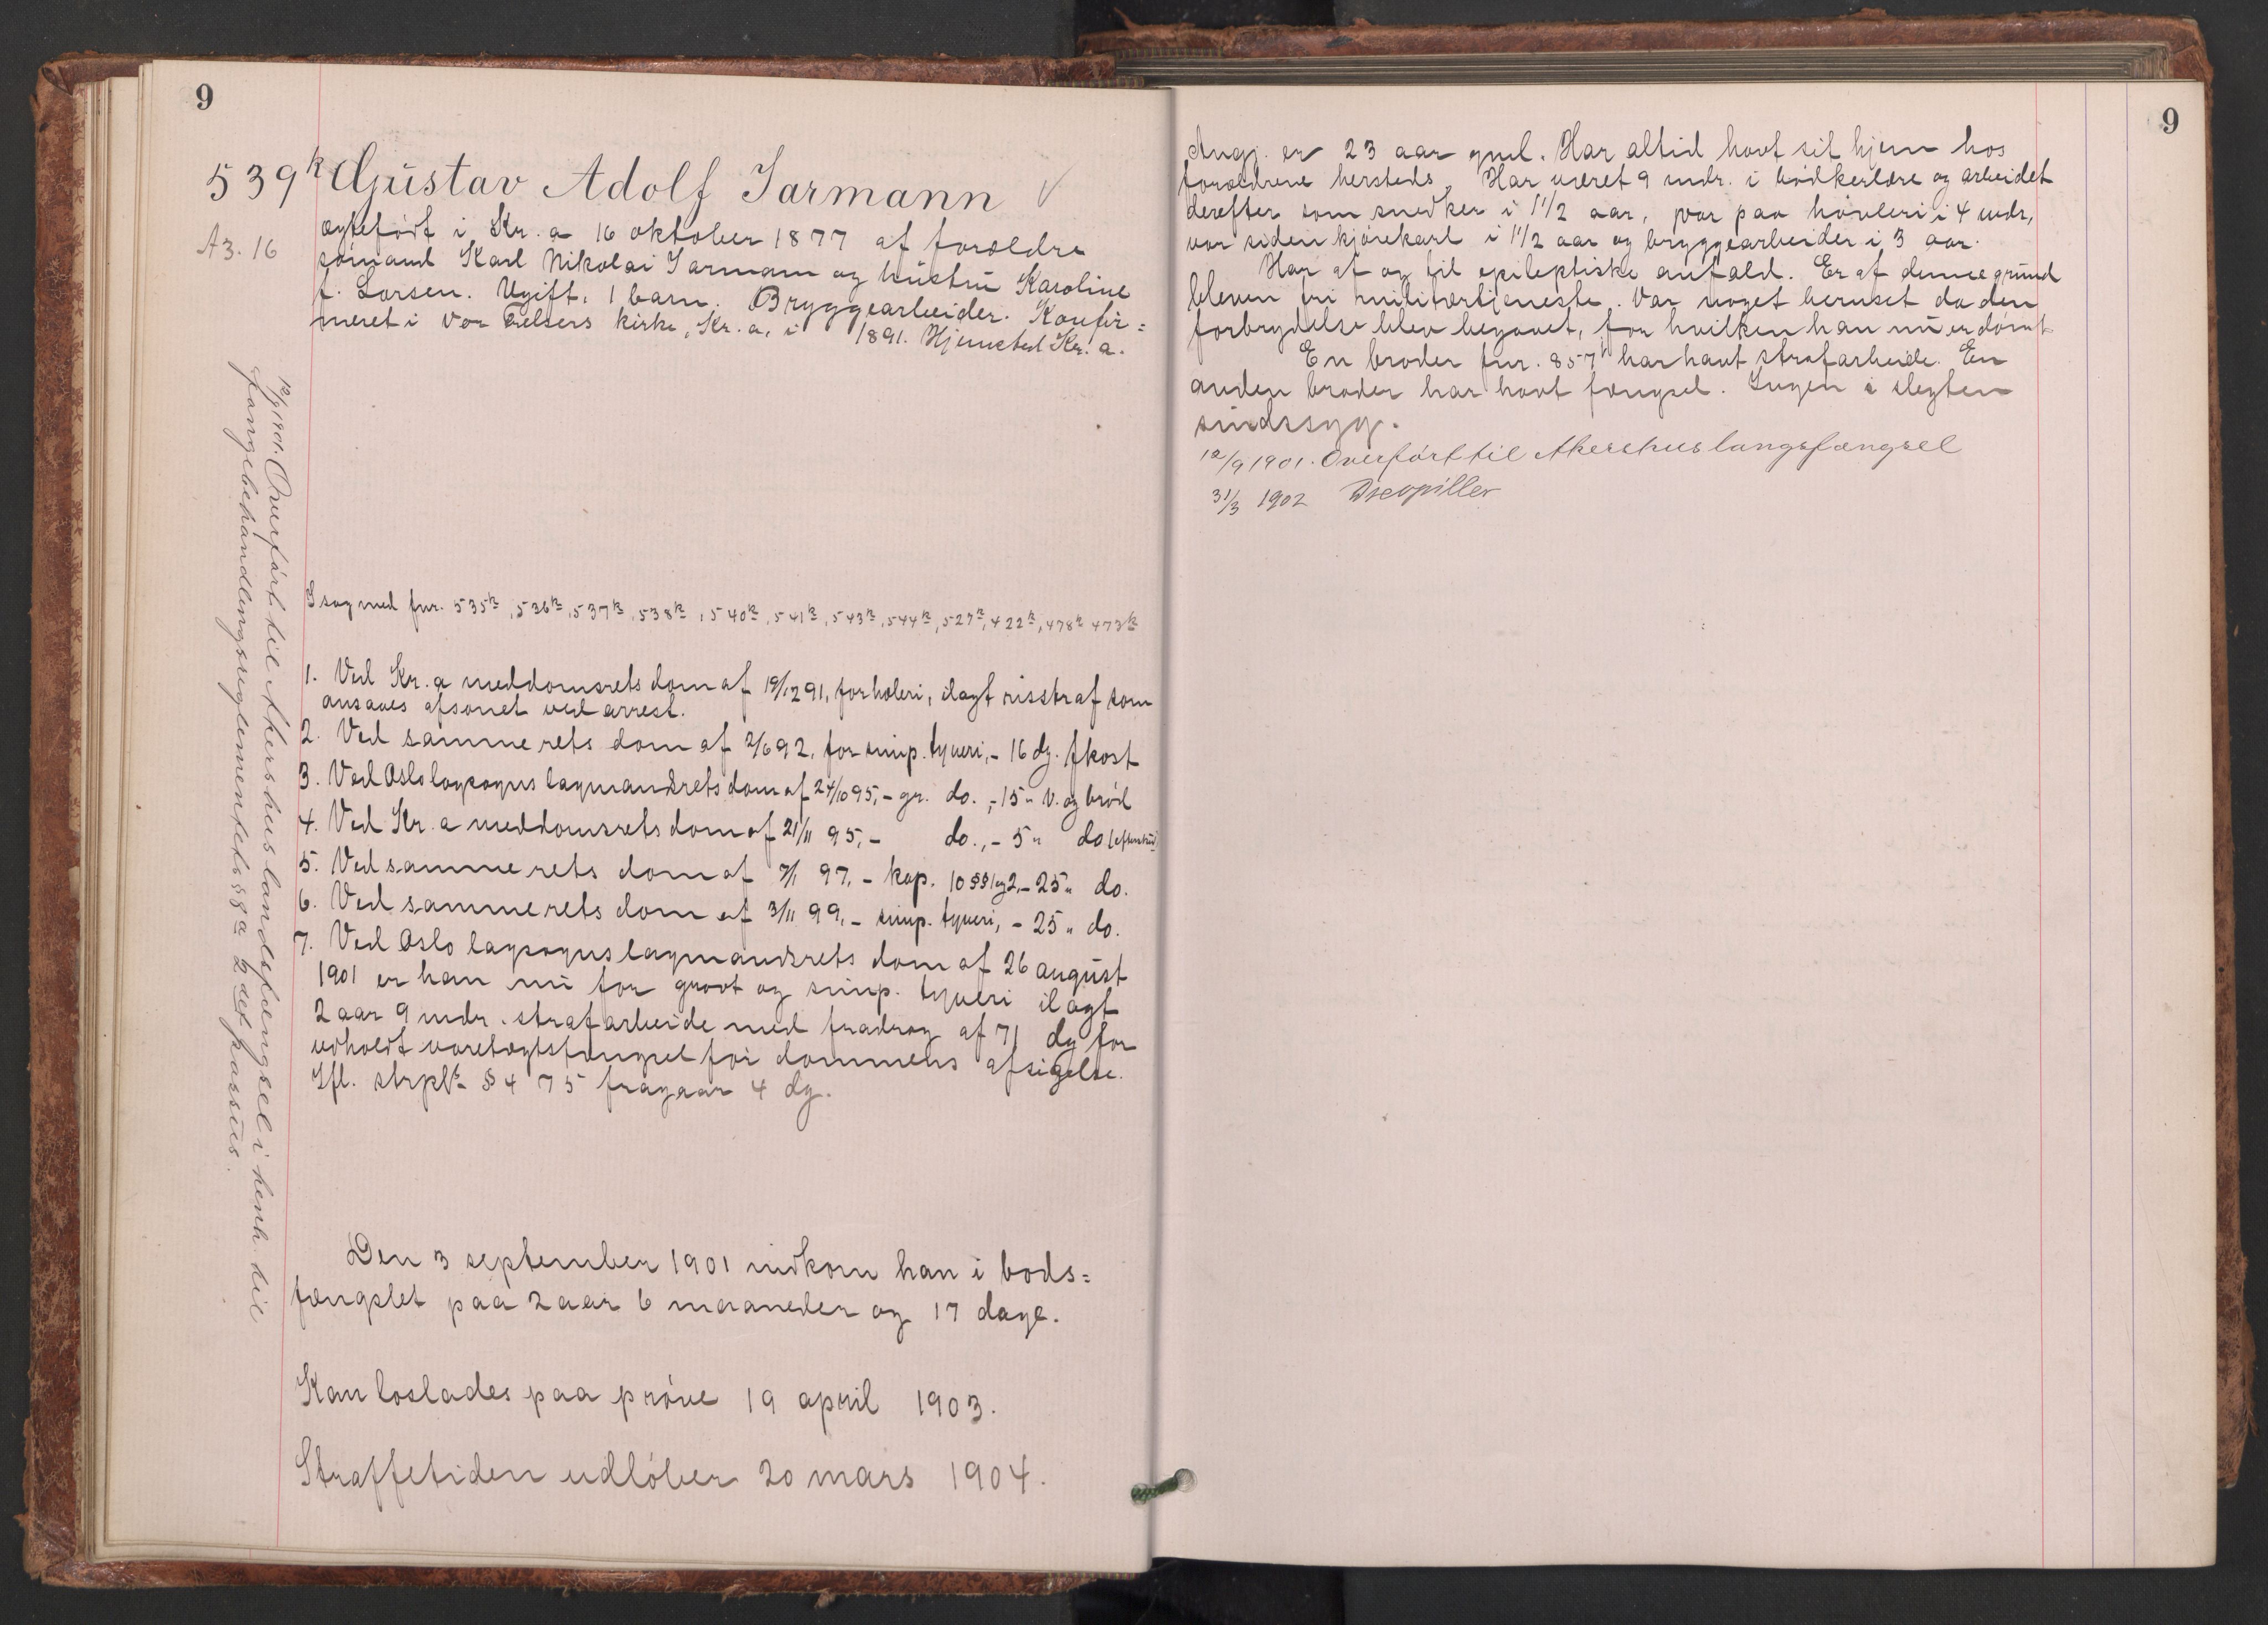 9
539k Gustav Adolf Jarmann
A3. 16
ægtefödt i Kr.a 16 oktober 1877 af forældre
sömand Karl Nikolai Jarmann og hustru Karoline
f. Larsen. Ugift, 1 barn. Bryggearbeider. Konfir=
meret i Vor Frelsers kirke, Kr.a, i 1891. Hjemsted Kr.a.
12/9 1901. Overfört til Akershus landsfængsel i henh. til
fangebehandlingsreglementets § 8 a 2det passus.
I sag med fnr. 535k, 536k, 537k, 538k, 540k, 541k, 543k, 544k, 527k, 422k, 478k 473k
1. Ved Kr.a meddomsrets dom af 19/12 91, for hæleri, ilagt risstraf som
ansaaes afsonet ved arrest.
2. Ved samme rets dom af 2/6 92, for simp. tyveri, - 16 dg. fkost
3. Ved Oslo lagsogns lagmandsrets dom af 24/10 95, - gr. do., - 15 " v. og bröd
4. Ved Kr.a meddomsrets dom af 21/11 95, - do., - 5 " do
5. Ved samme rets dom af 7/1 97, - kap. 10 §§ 1 og 2, - 25 " do.
6. Ved samme rets dom af 3/11 99, - simp. tyveri, - 25 " do.
7. Ved Oslo lagsogns lagmandsrets dom af 26 august
1901 er han nu for grovt og simp. tyveri ilagt
2 aar 9 mdr. strafarbeide med fradrag af 71 dg for
udholdt varetægtsfængsel för dommens afsigelse.
Ifl. strpl. § 475 fragaar 4 dg.
Den 3 september 1901 indkom han i bods=
fængslet paa 2 aar 6 maaneder og 17 dage.
Kan löslades paa pröve 19 april 1903.
Straffetiden udlöber 20 mars 1904.
9
Angj. er 23 aar gml. Har altid havt sit hjem hos
forældrene hersteds. Har været 9 mdr. i bödkerlære og arbeidet
derefter som snedker i 1 1/2 aar, var paa høvleri i 4 mdr,
var siden kjörekarl i 1 1/2 aar og bryggearbeider i 3 aar.
Har af og til epileptiske anfald. Er af denne grund
bleven fri militærtjeneste. Var noget beruset da den
forbrydelse blev begaaet, for hvilken han nu er dömt.
En broder fnr. 857 har havt strafarbeide. En
anden broder har havt fængsel. Ingen i slegten
sindssyg.
12/9 1901. Overfört til Akershus langsfængsel
31/3 1902